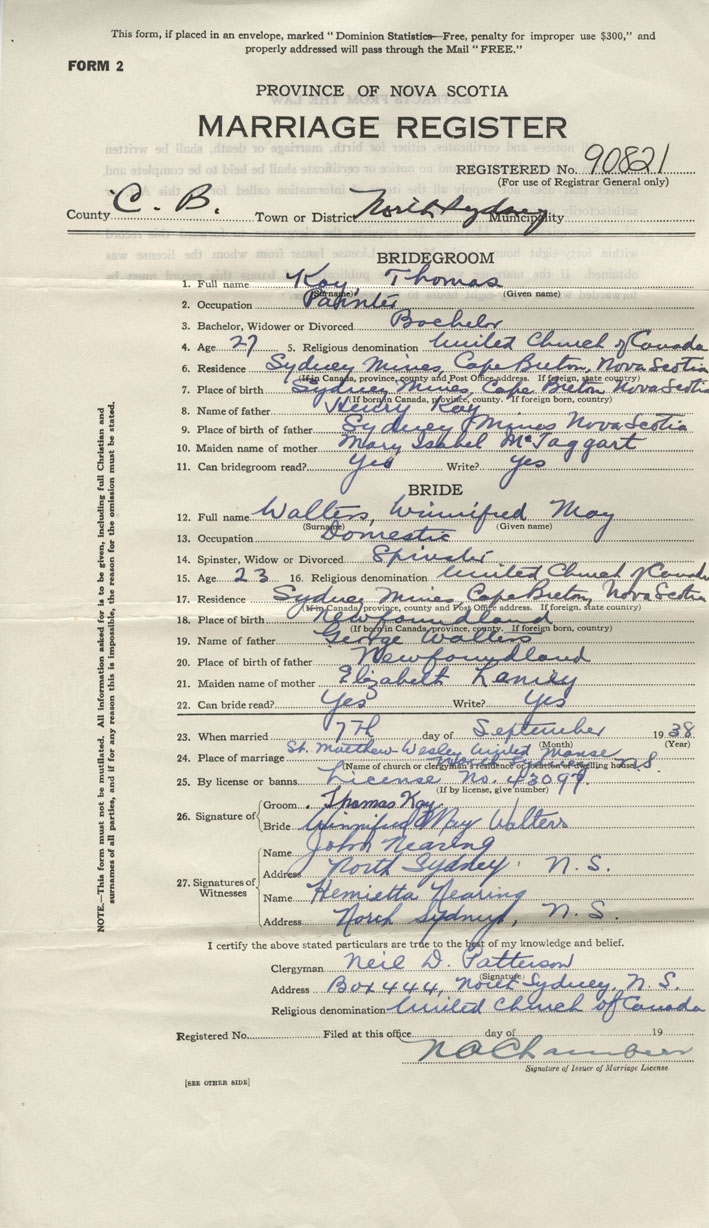 This form, if placed in an envelope, marked " Dominion Statistics—Free, penalty for improper use $300," and
properly addressed will pass through the Mail " FREE."
FORM 2
PROVINCE OF NOVA SCOTIA
MARRIAGE REGISTER
REGISTERED No. 90821
(For use of Registrar General only)
County C. B. Town or District North Sydney Municipality
BRIDEGROOM
1. Full name Kay, Thomas
(Surname) (Given name)
2. Occupation Painter
3. Bachelor, Widower or Divorced Bachelor
4. Age 27 5. Religious denomination United Church of Canada
6. Residence Sydney Mines, Cape Breton, Nova Scotia
(If in Canada, province, county and Post Office address. If foreign, state country)
7. Place of birth Sydney Mines, Cape Breton Nova Scotia
(If born in Canada, province, county. If foreign born, country)
8. Name of father Henry Kay
9. Place of birth of father Sydney Mines Nova Scotia
10. Maiden name of mother Mary Isabel McTaggart
11. Can bridegroom read? Yes Write? Yes
BRIDE
12. Full name Walters, Winnifred May
(Surname) (Given name)
13. Occupation Domestic
14. Spinster, Widow or Divorced Spinster
15. Age 23 16. Religious denomination United Church of Canada
17. Residence Sydney Mines, Cape Breton, Nova Scotia
(If in Canada, province, county and Post Office address. If foreign, state country)
18. Place of birth Newfoundland
(If born in Canada, province, county. If foreign born, country)
19. Name of father George Walters
20. Place of birth of father Newfoundland
21. Maiden name of mother Elizabeth
22. Can bride read? Yes Write? Yes
23. When married 7th day of September 1938
(Month) (Year)
24. Place of marriage St. Matthew-Wesley United Manse
North Sydney N.S.
(Name of church or clergyman's residence or location of dwelling house)
25. By license or banns License No. 43099
(If by license, give number)
26. Signature of Groom Thomas Kay
Bride Winnifred May Walters
27. Signatures of Witnesses
Name John Nearing
Address North Sydney, N.S.
Name Henrietta Nearing
Address North Sydney, N.S.
I certify the above stated particulars are true to the best of my knowledge and belief.
Clergyman Neil D. Patterson
(Signature)
Address Box 444, North Sydney, N.S.
Religious denomination United Church of Canada
Registered No. Filed at this office day of 19
Signature of Issuer of Marriage License
[SEE OTHER SIDE]
NOTE.—This form must not be mutilated. All information asked for is to be given, including full Christian and
surnames of all parties, and if for any reason this is impossible, the reason for the omission must be stated.